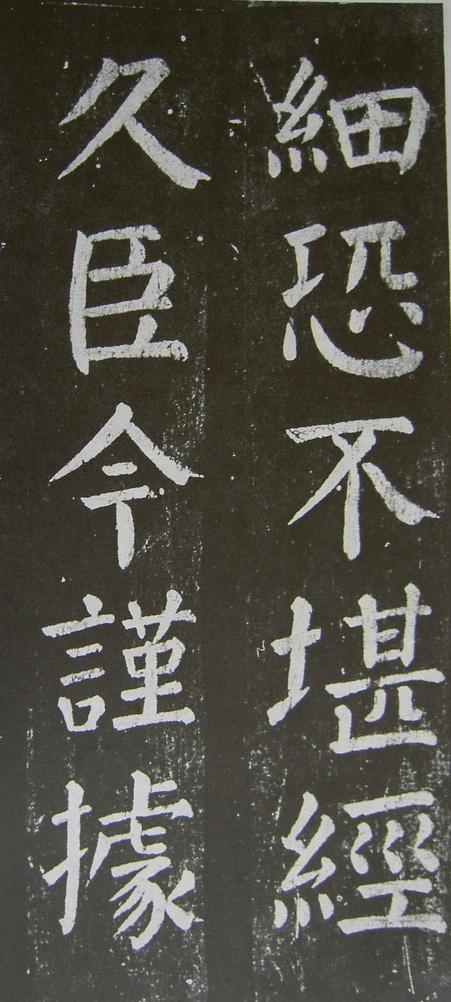 細恐不堪經
久臣今謹據